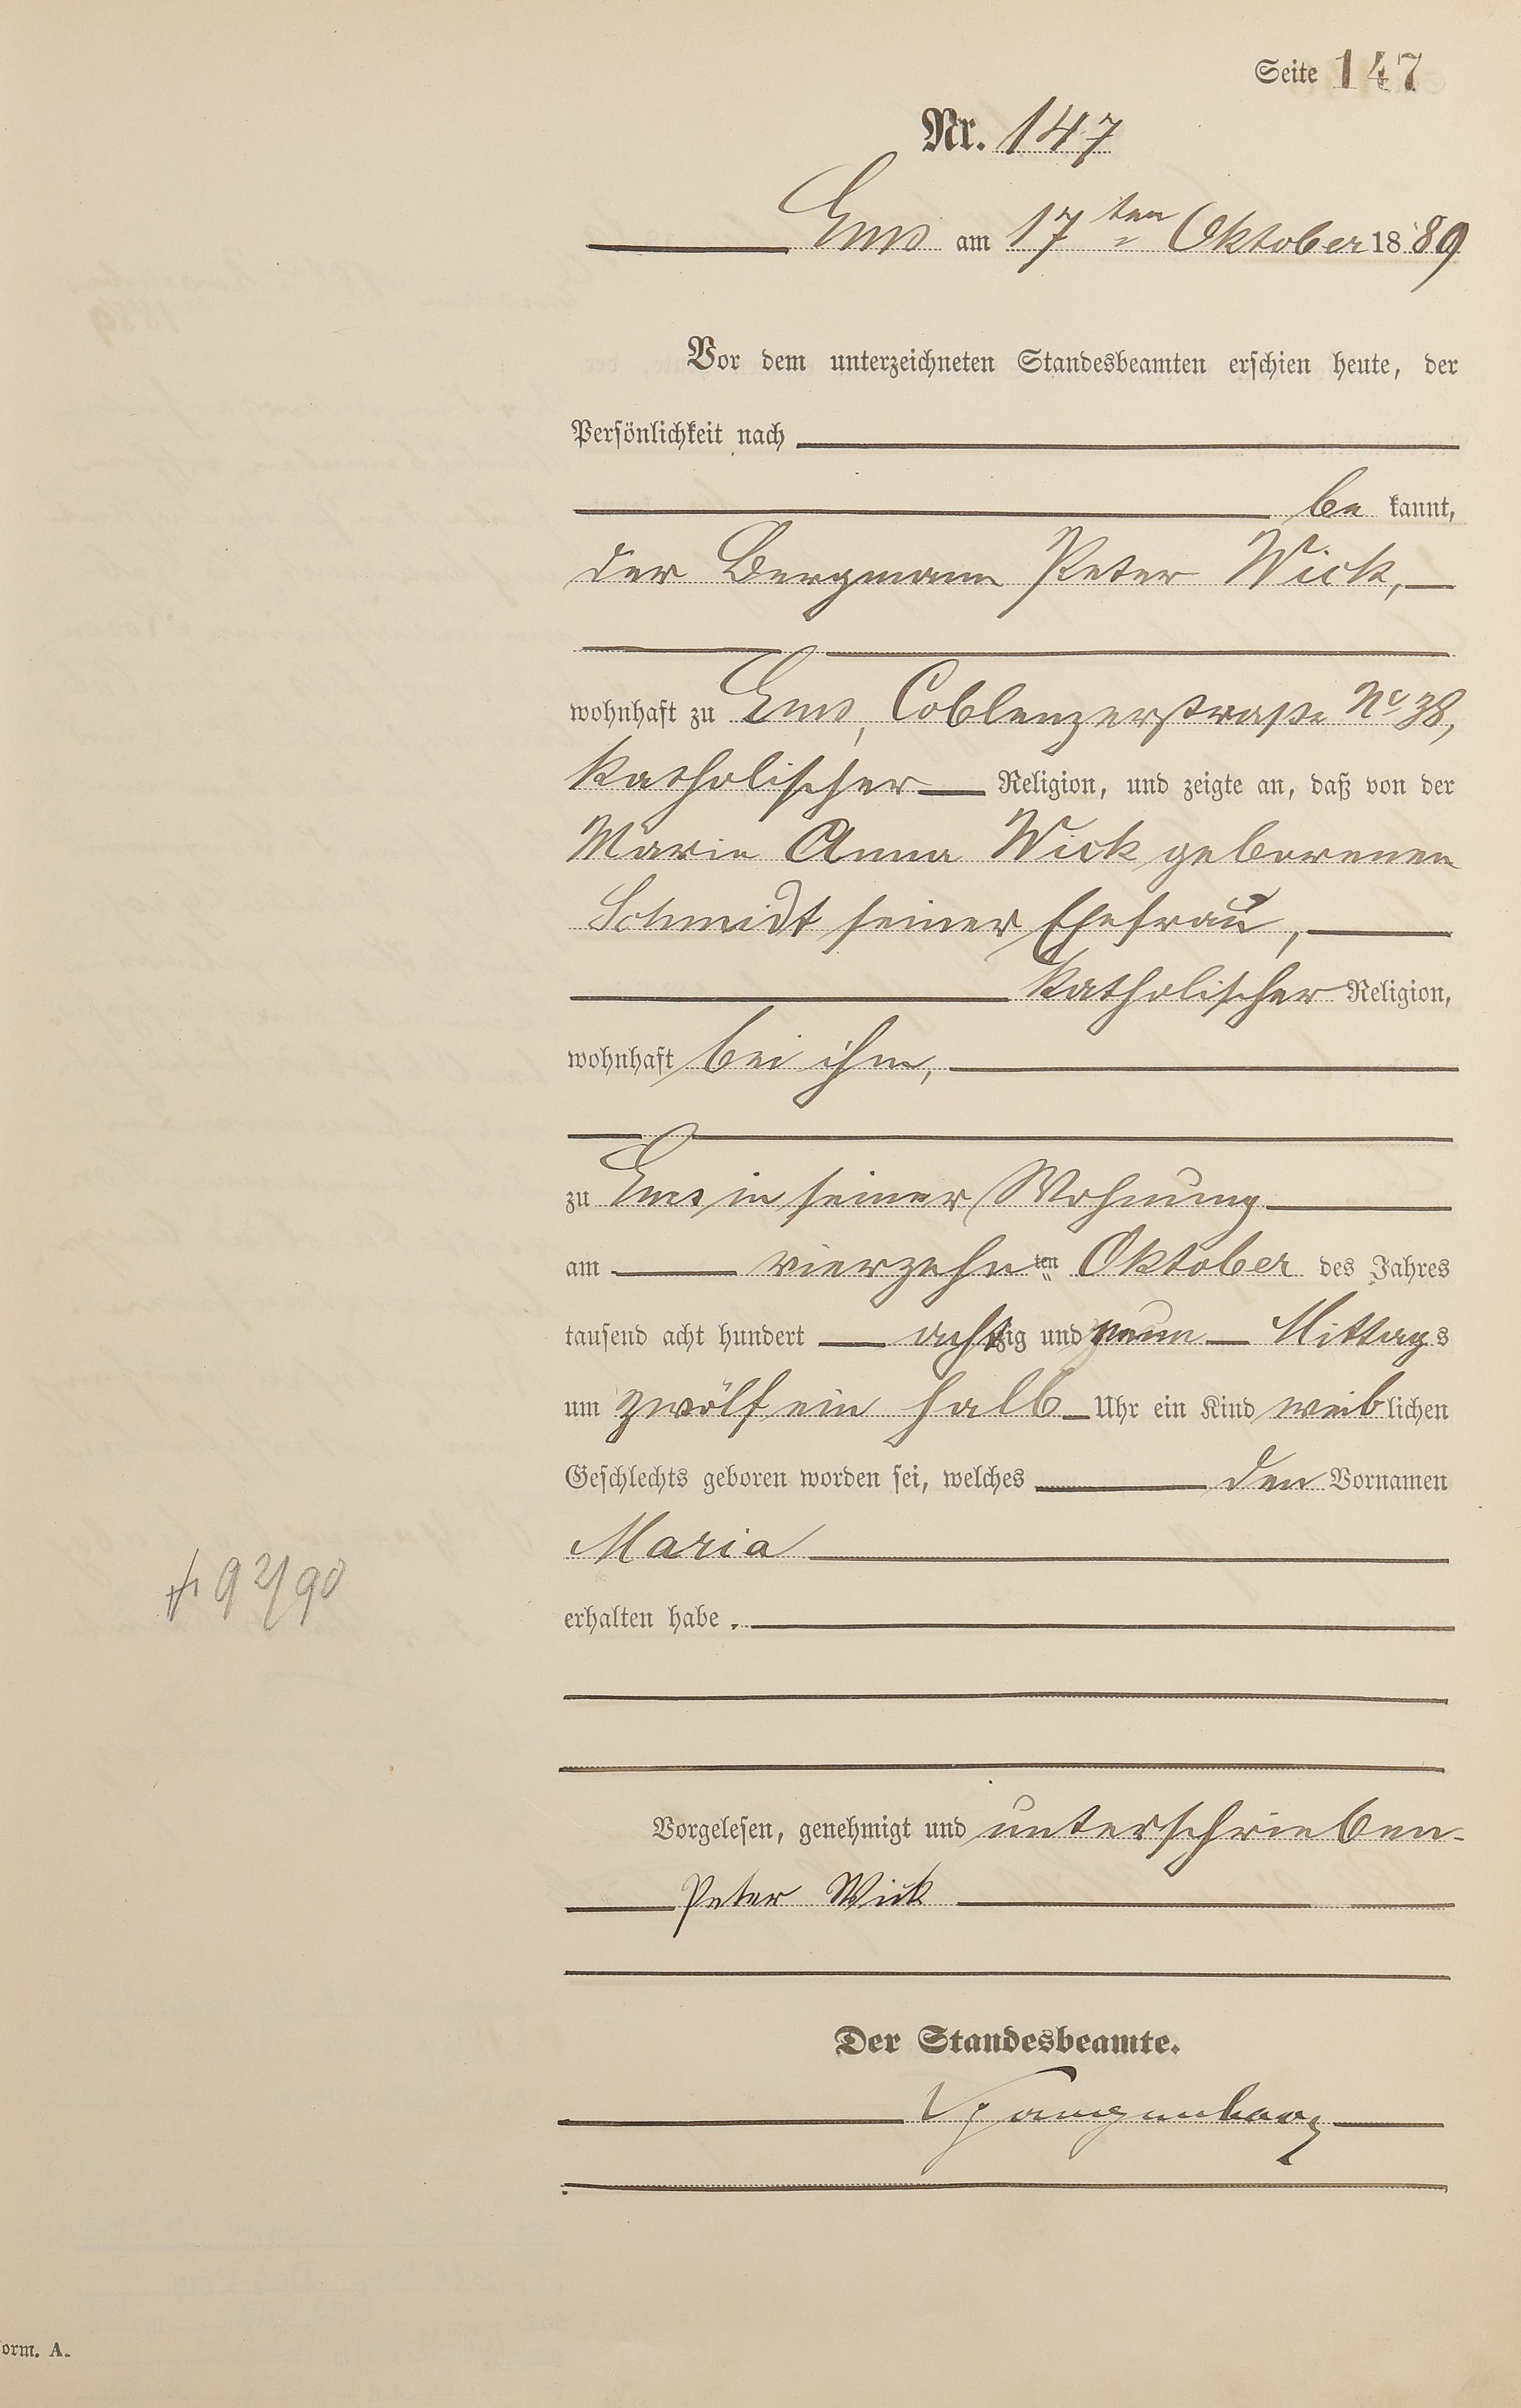 Seite 147
Nr. 147
Ems am 17ten Oktober 1889
Vor dem unterzeichneten Standesbeamten erschien heute, der
Persönlichkeit nach
be kannt,
der Bergmann Peter Wick,
wohnhaft zu Ems, Coblenzerstraße No 38,
katholischer Religion, und zeigte an, daß von der
Marie Anna Wick geborenen
Schmidt seiner Ehefrau,
katholischer Religion,
wohnhaft bei ihm,
zu Ems in seiner Wohnung
am vierzehnten Oktober des Jahres
tausend acht hundert achtzig und neun Mittags
um zwölf ein halb Uhr ein Kind weiblichen
Geschlechts geboren worden sei, welches den Vornamen
Maria
+ 92/90
erhalten habe.
Vorgelesen, genehmigt und unterschrieben
Peter Wick
Der Standesbeamte.
orm. A.